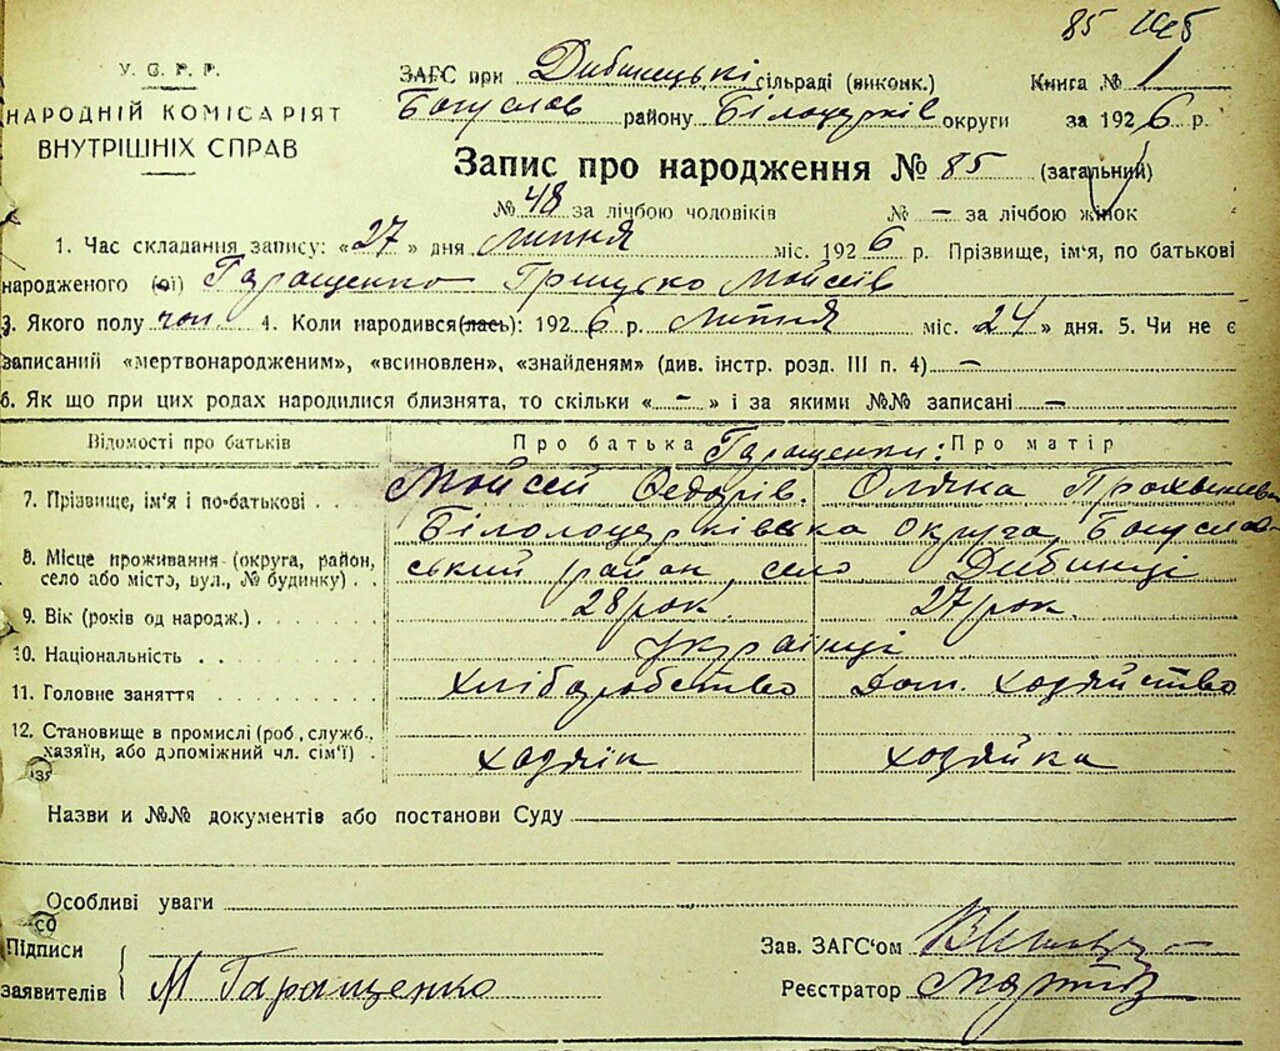 85
У. С. Р. Р.
НАРОДНІЙ КОМІСАРІЯТ
ВНУТРІШНІХ СПРАВ
ЗАГС при Дибинецькі сільраді (виконк.) Книга № 1
Богуслав району Білоцерків округи за 1926 р.
Запис про народження № 85 (загальний)
№ 48 за лічбою чоловіків № – за лічбою жінок
1. Час складання запису: «27» дня липня міс. 1926 р. Прізвище, ім'я, по батькові
народженого (ої) Гаращенко Грицько Мойсеїв
3. Якого полу чол. 4. Коли народився(лась): 1926 р. липня міс. 24 » дня. 5. Чи не є
записаний «мертвонародженим», «всиновлен», «знайденям» (див. інстр. розд. III п. 4) –
6. Як що при цих родах народилися близнята, то скільки « – » і за якими №№ записані –
Відомості про батьків Про батька Гаращенки: Про матір
7. Прізвище, ім'я і по-батькові . . . Мойсей Федорів. Оляна
Білолоцерківська округа, Богуслав-
8. Місце проживання (округа, район,
село або місто, вул., № будинку) . . ський район, село Дибинці
9. Вік (років од народж.) . . . . . . . 28 рок. 27 рок.
10. Національність . . . . . . . . українці
11. Головне заняття . . . . . . . . хліборобство Дом. хозяйство
12. Становище в промислі (роб., служб.,
хазяїн, або допоміжний чл. сім'ї) . хозяїн хозяйка
Назви и №№ документів або постанови Суду
Особливі уваги
Підписи
заявителів М Гаращенко
Зав. ЗАГС'ом
Реєстратор